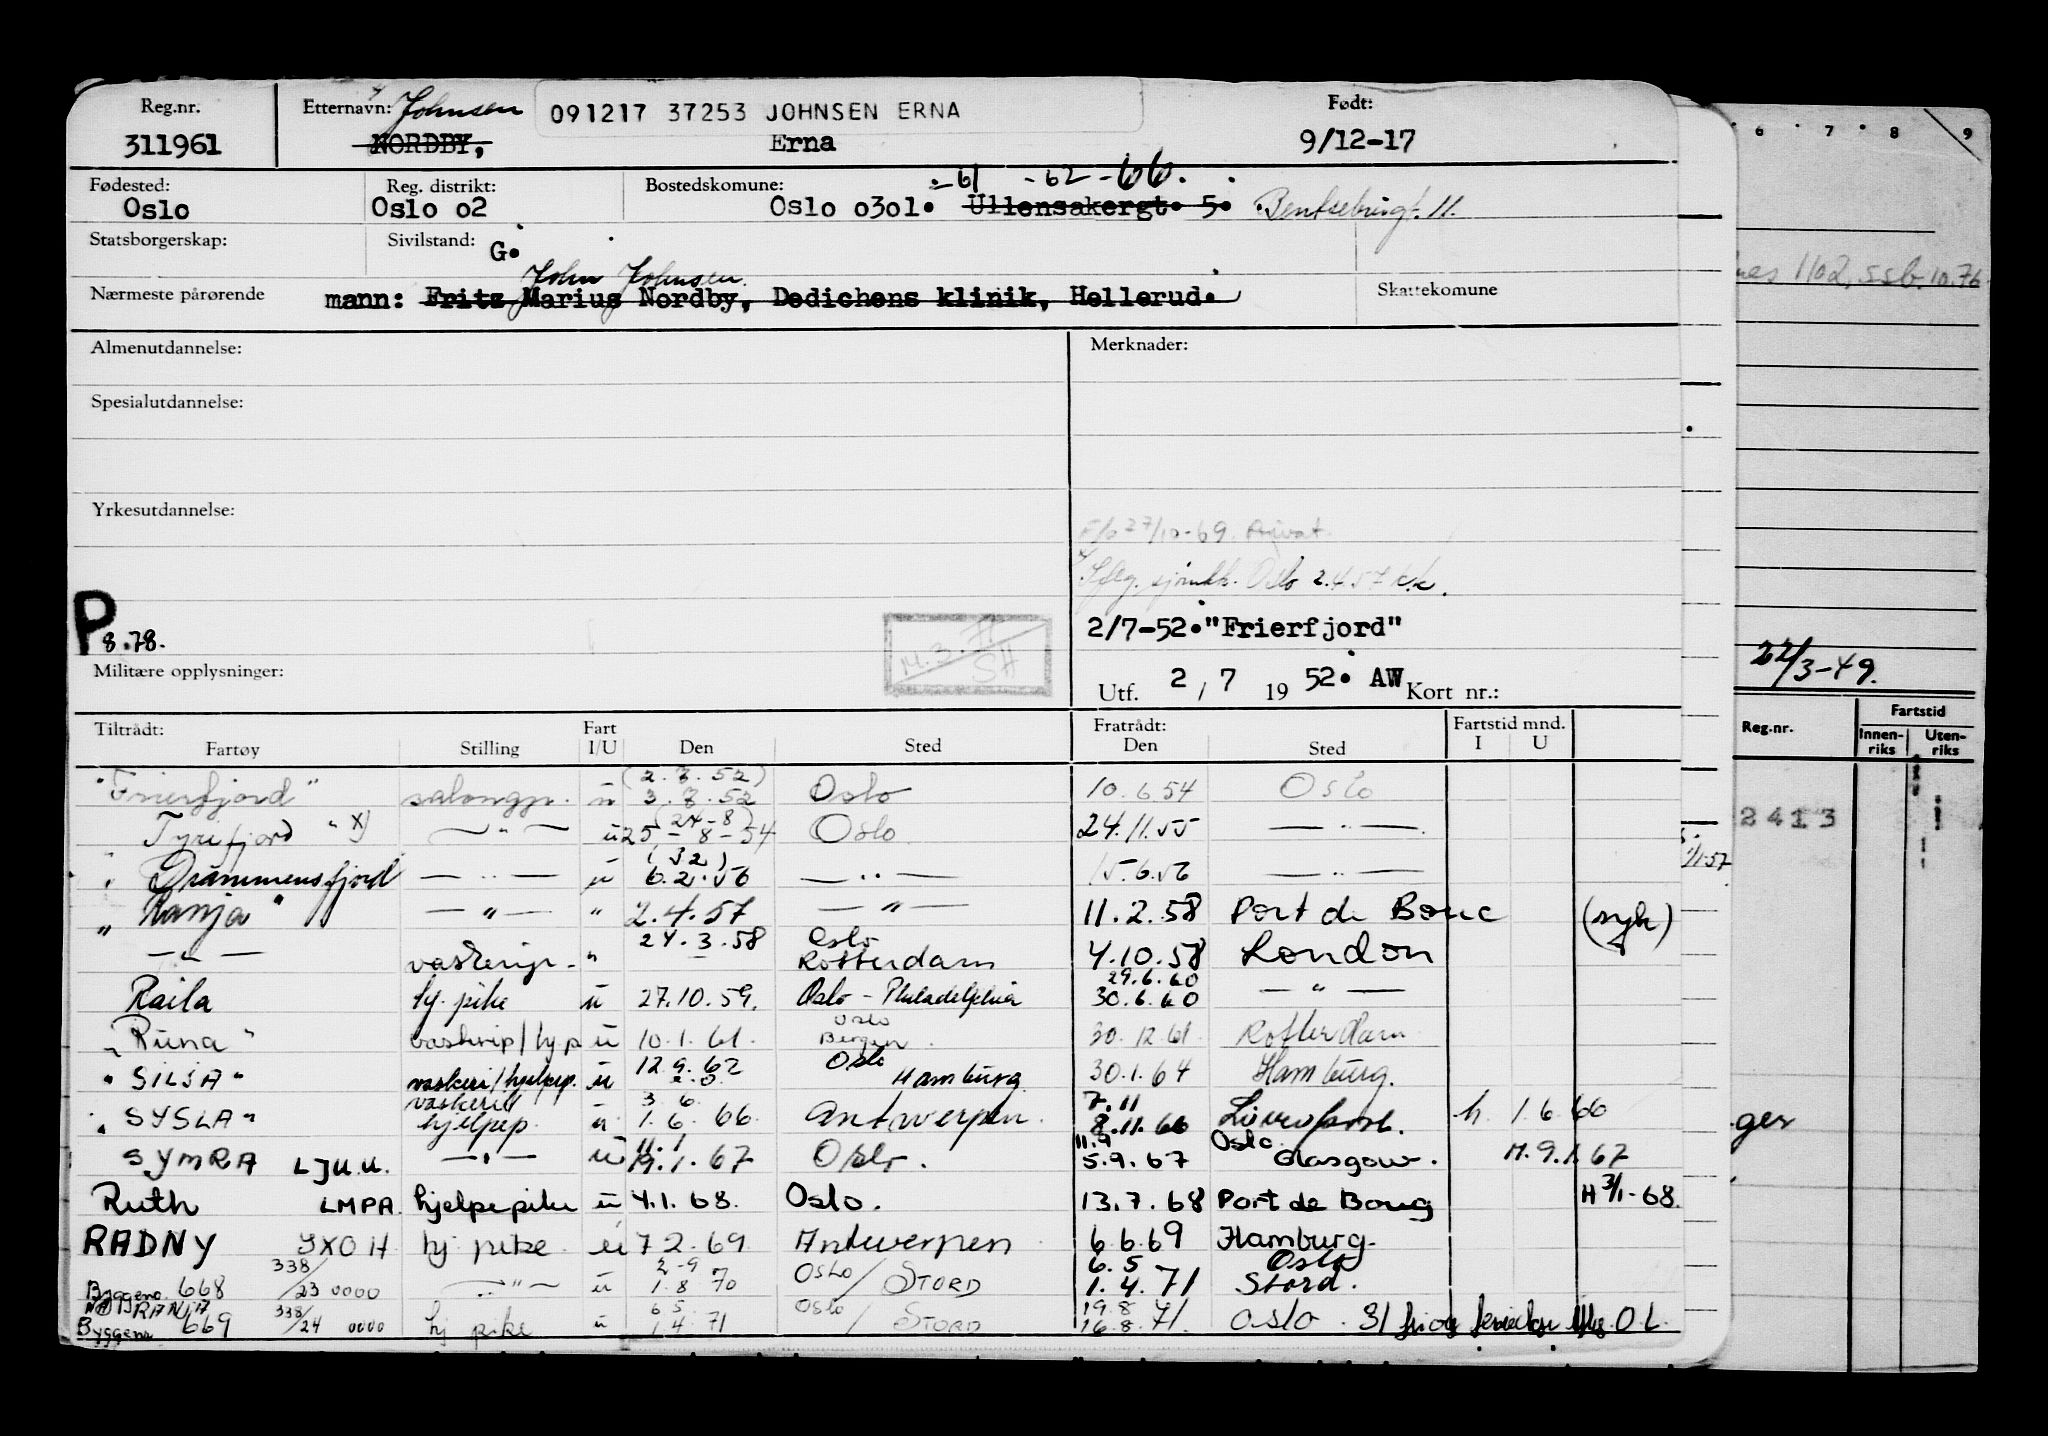 Reg.nr. Etternavn: Johnsen 091217 37253 JOHNSEN ERNA Født:
311961 NORDBY, Erna 9/12-17
Fødested: Reg. distrikt: Bostedskomune: -61 -62-66.
Oslo Oslo 02 Oslo 0301. Ullensakergt. 5. Bentsebrugt. 11.
Statsborgerskap: Sivilstand: G.
John Johnsen.
Nærmeste pårørende mann: Fritz Marius Nordby, Dedichens klinik, Hellerud. Skattekomune
Almenutdannelse: Merknader:
Spesialutdannelse:
Yrkesutdannelse:
27/10-69. Privat.
Oslo 2.4.57 k.k.
P 8.78. 2/7-52."Frierfjord"
M.3. SH
Militære opplysninger: Utf. 2 / 7 19 52. AW Kort nr.:
Tiltrådt: Fart Fratrådt: Fartstid mnd.
Fartøy Stilling I/U Den Sted Den Sted I U
"Frierfjord" salongp. u (2.7.52) 3.7.52 Oslo 10.6.54 Oslo
" Tyrifjord " x) — " — u (24-8) 25-8-54 Oslo 24.11.55 — " —
" Drammensfjord — " — u 6.2.56 — " — 15.6.56 — " —
" Ranja " — " — " 2.4.57 — " — 11.2.58 Port de Bouc (syk)
— " — vaskerip. " 24.3.58 Oslo Rotterdam 4.10.58 London
Raila hj. pike u 27.10.59. Oslo - Philadelphia 29.6.60 30.6.60 — " —
" Runa " vaskerip/hjp u 10.1.61. Oslo Bergen. 30.12.61 Rotterdam
" SILJA " vaskeri/hjelpep. u 12.9.62 Oslo Hamburg 30.1.64 Hamburg.
" SYSLA " vaskeri/ hjelpep. u 3.6. 1.6.66. Antwerpen. 7.11 8.11.66 Liverpool. h. 1.6.66
SYMRA LJUU. — " — u 11.1 19.1.67 Oslo. 11.9 5.9.67 Oslo Glasgow. M.9.1.67
Ruth LMPA. hjelpepike u 4.1.68. Oslo. 13.7.68 Port de Boug H 3/1-68.
RADNY JXOH hj. pike u 7.2.69. Antwerpen 6.6.69 Hamburg.
Byggenr. 668 338/23 0000 — " — u 2-9 1.8.70 Oslo/STORD 6.5 1.4.71 Oslo Stord.
RANJA
Byggenr 669 338/24 0000 hj pike u 6.5 1.4.71 Oslo/STORD 19.8 16.8.71. Oslo.
6 7 8 9
1102, ssb. 10.76
22/3-49.
Reg.nr. Fartstid
Innen-riks Uten-riks
2413
1/1-57
ger